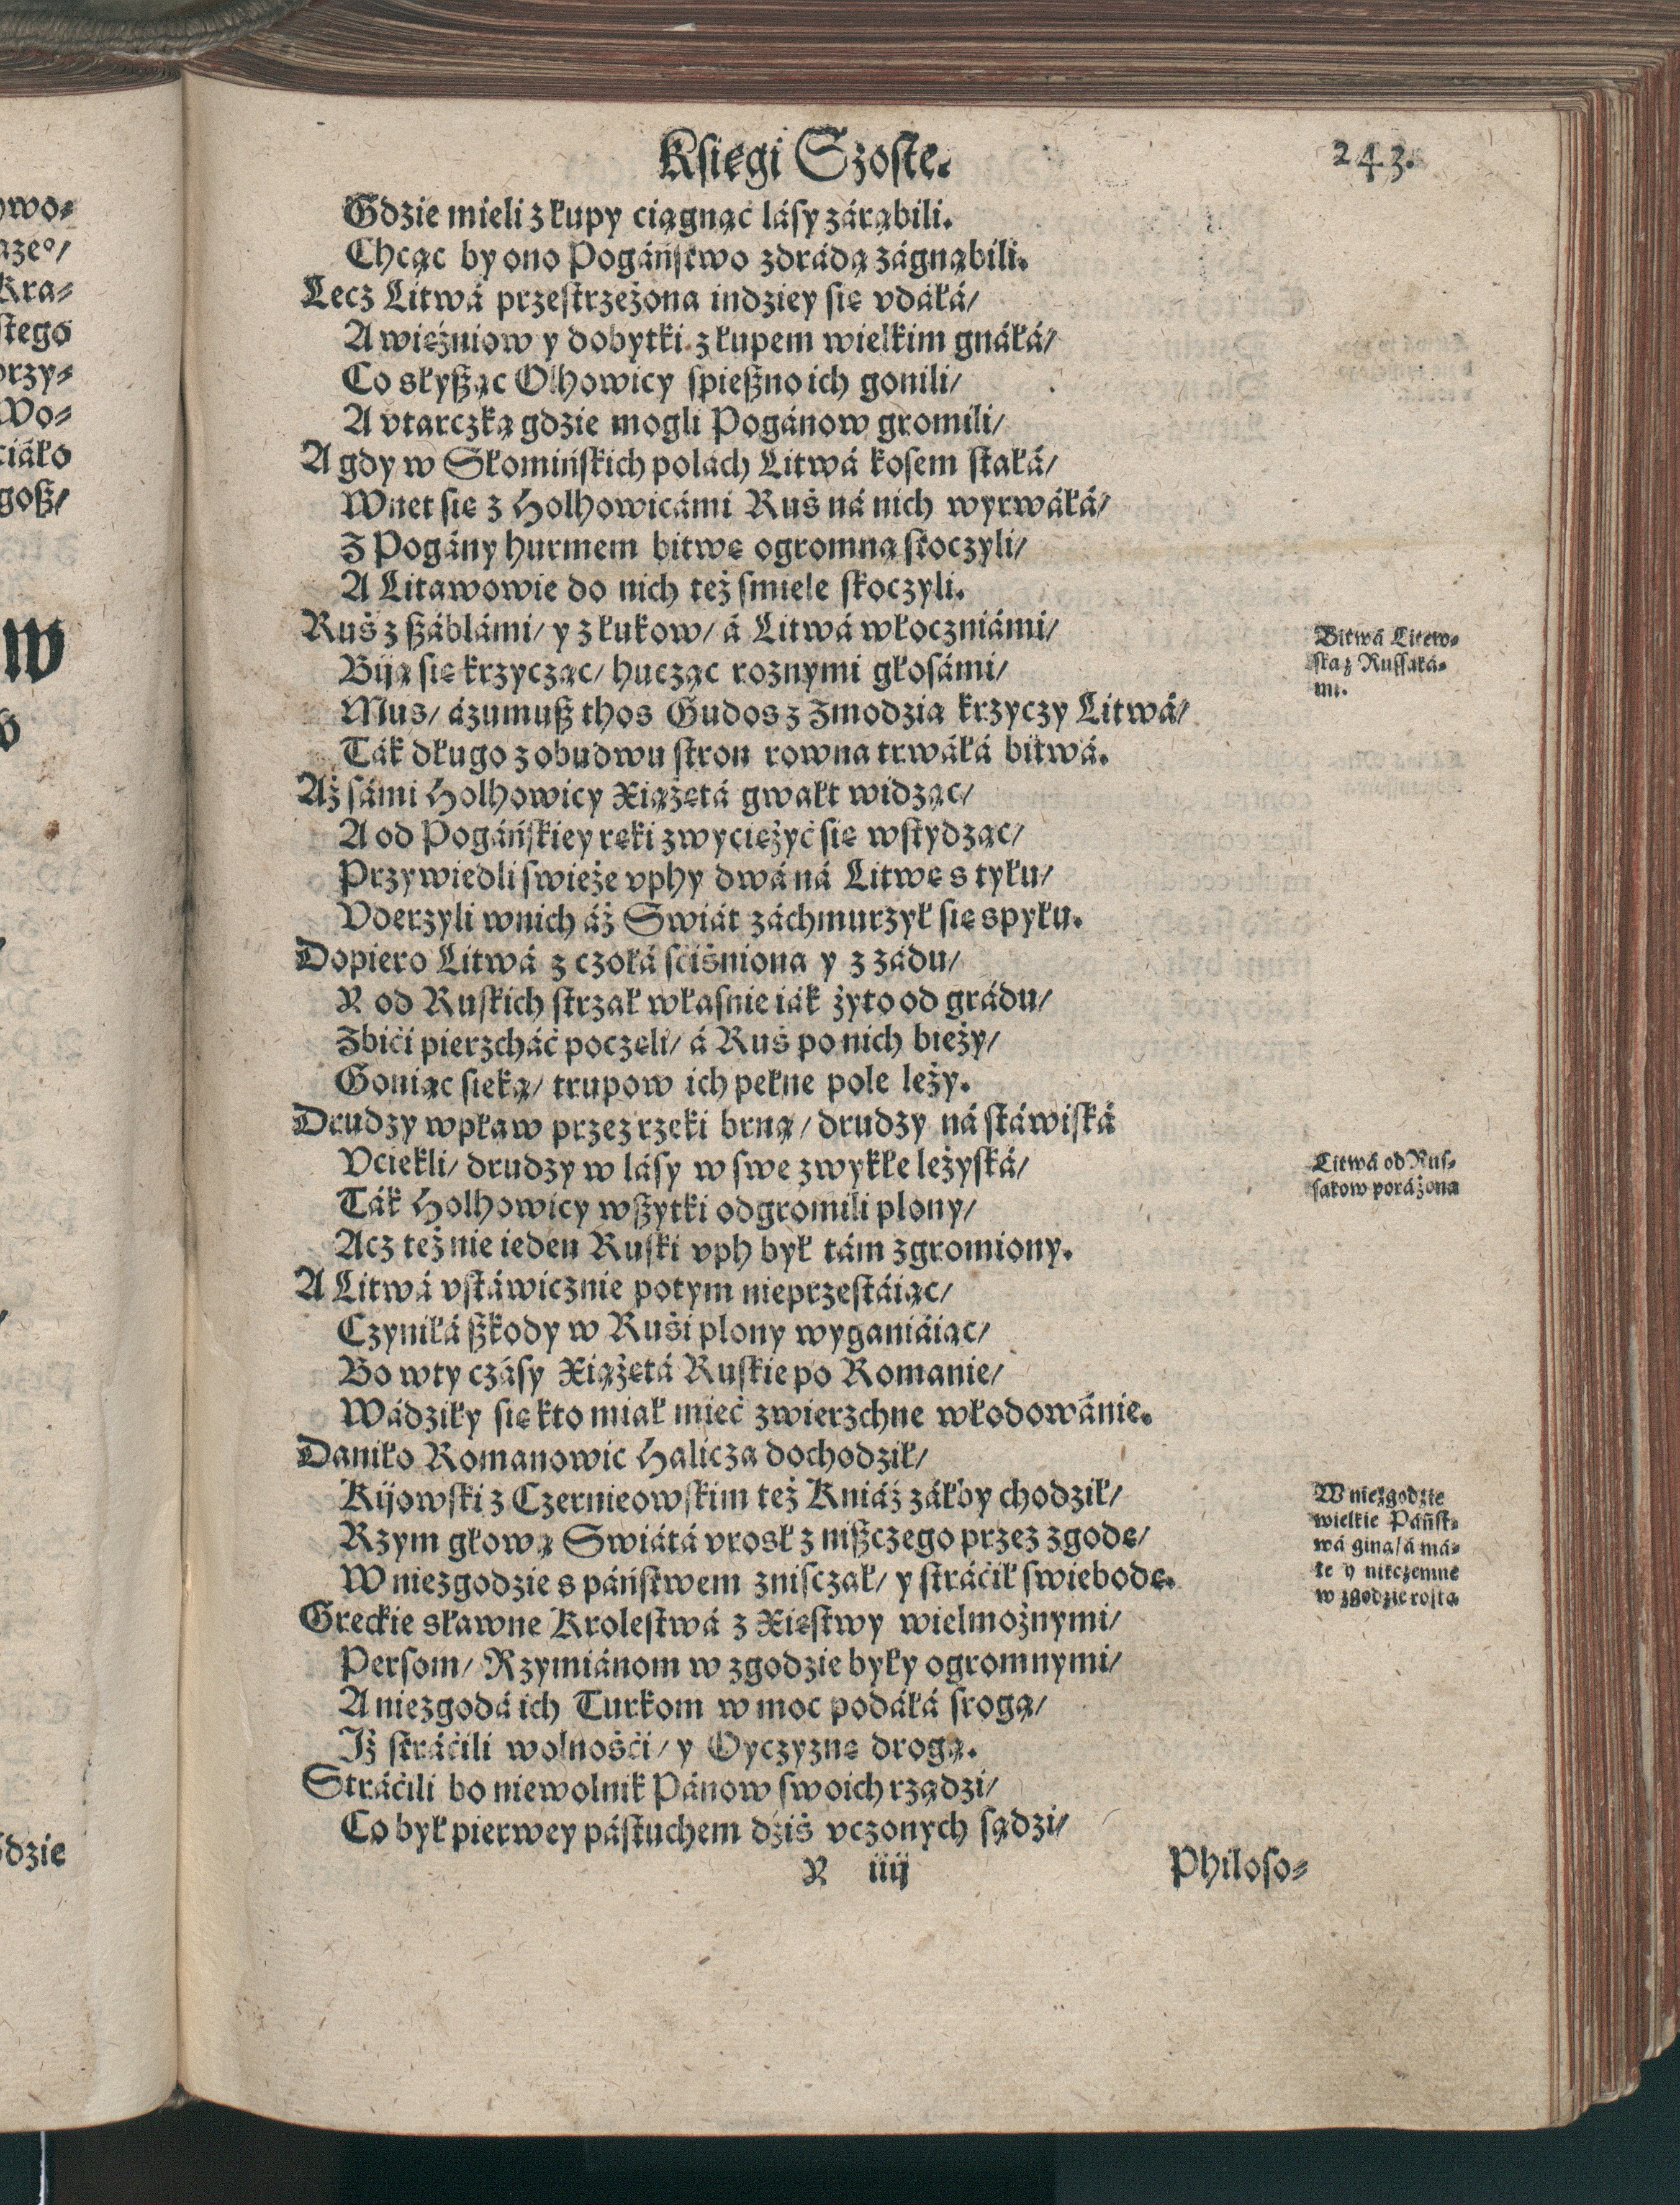 Księgi Szoste.
243.
Gdzie mieli z łupy ciągnąć lásy zárąbili.
Chcąc by ono Pogáńſtwo zdrádą zágnąbili.
Lecz Litwá przeſtrzeżona indziey ſię vdáłá/
A więźniow y dobytki z łupem wielkim gnáłá/
Co słyßąc Olhowicy ſpießno ich gonili/
A vtarczką gdzie mogli Pogánow gromili/
A gdy w Słomińſkich polách Litwá koſem ſtałá/
Wnet ſię z Holhowicámi Ruś ná nich wyrwáłá/
Z Pogány hurmem bitwę ogromną ſtoczyli/
A Litawowie do nich też ſmiele ſkoczyli.
Ruś z ßáblámi/ y z łukow/ á Litwá włoczniámi/
Biją ſię krzycząc/ hucząc roznymi głoſámi/
Mus/ ázumuß thos Gudos z Zmodzią krzyczy Litwá/
Ták długo z obudwu ſtron rowna trwáłá bitwá.
Aż ſámi Holhowicy Xiążętá gwałt widząc/
A od Pogáńſkiey ręki zwyciężyć ſię wſtydząc/
Przywiedli ſwieże vphy dwá ná Litwę s tyłu/
Vderzyli wnich áż Swiát záchmurzył ſię spyłu.
Dopiero Litwá z czołá ſciśniona y z zádu/
Y od Ruſkich ſtrzał własnie iák żyto od grádu/
Zbići pierzcháć poczęli/ á Ruś po nich bieży/
Goniąc ſieką/ trupow ich pełne pole leży.
Drudzy wpław przez rzeki brną/ drudzy ná ſtáwiſká
Vciekli/ drudzy w lásy w ſwe zwykłe leżyſká/
Ták Holhowicy wßytki odgromili plony/
Acz też nie ieden Ruſki vph był tám zgromiony.
A Litwá vſtáwicznie potym nieprzeſtáiąc/
Czyniłá ßkody w Ruśi plony wyganiáiąc/
Bo wty czáſy Xiążętá Ruſkie po Romanie/
Wádziły ſię kto miał mieć zwierzchne włodowánie.
Daniło Romanowic Halicza dochodził/
Kijowſki z Czernieowſkim też Kniáź záłby chodził/
Rzym głową Swiátá vrosł z nißczego przez zgodę/
W niezgodzie s páńſtwem zniſczał/ y ſtráćił ſwiebodę.
Greckie sławne Kroleſtwá z Xięſtwy wielmożnymi/
Perſom/ Rzymiánom w zgodzie były ogromnymi/
A niezgodá ich Turkom w moc podáłá ſrogą/
Iż ſtráćili wolnośći/ y Oyczyznę drogą.
Stráćili bo niewolnik Pánow ſwoich rządzi/
Co był pierwey páſtuchem dźiś vczonych ſądzi/
Y iiij
Philoſo⸗
Bitwá Litew⸗
ſka z Ruſſaká⸗
mi.
Litwá od Ruſ⸗
ſakow poráżona
W niezgodzie
wielkie Páńſt⸗
wá giną/ á má⸗
łe y nikczemne
w zgodzie roſtą